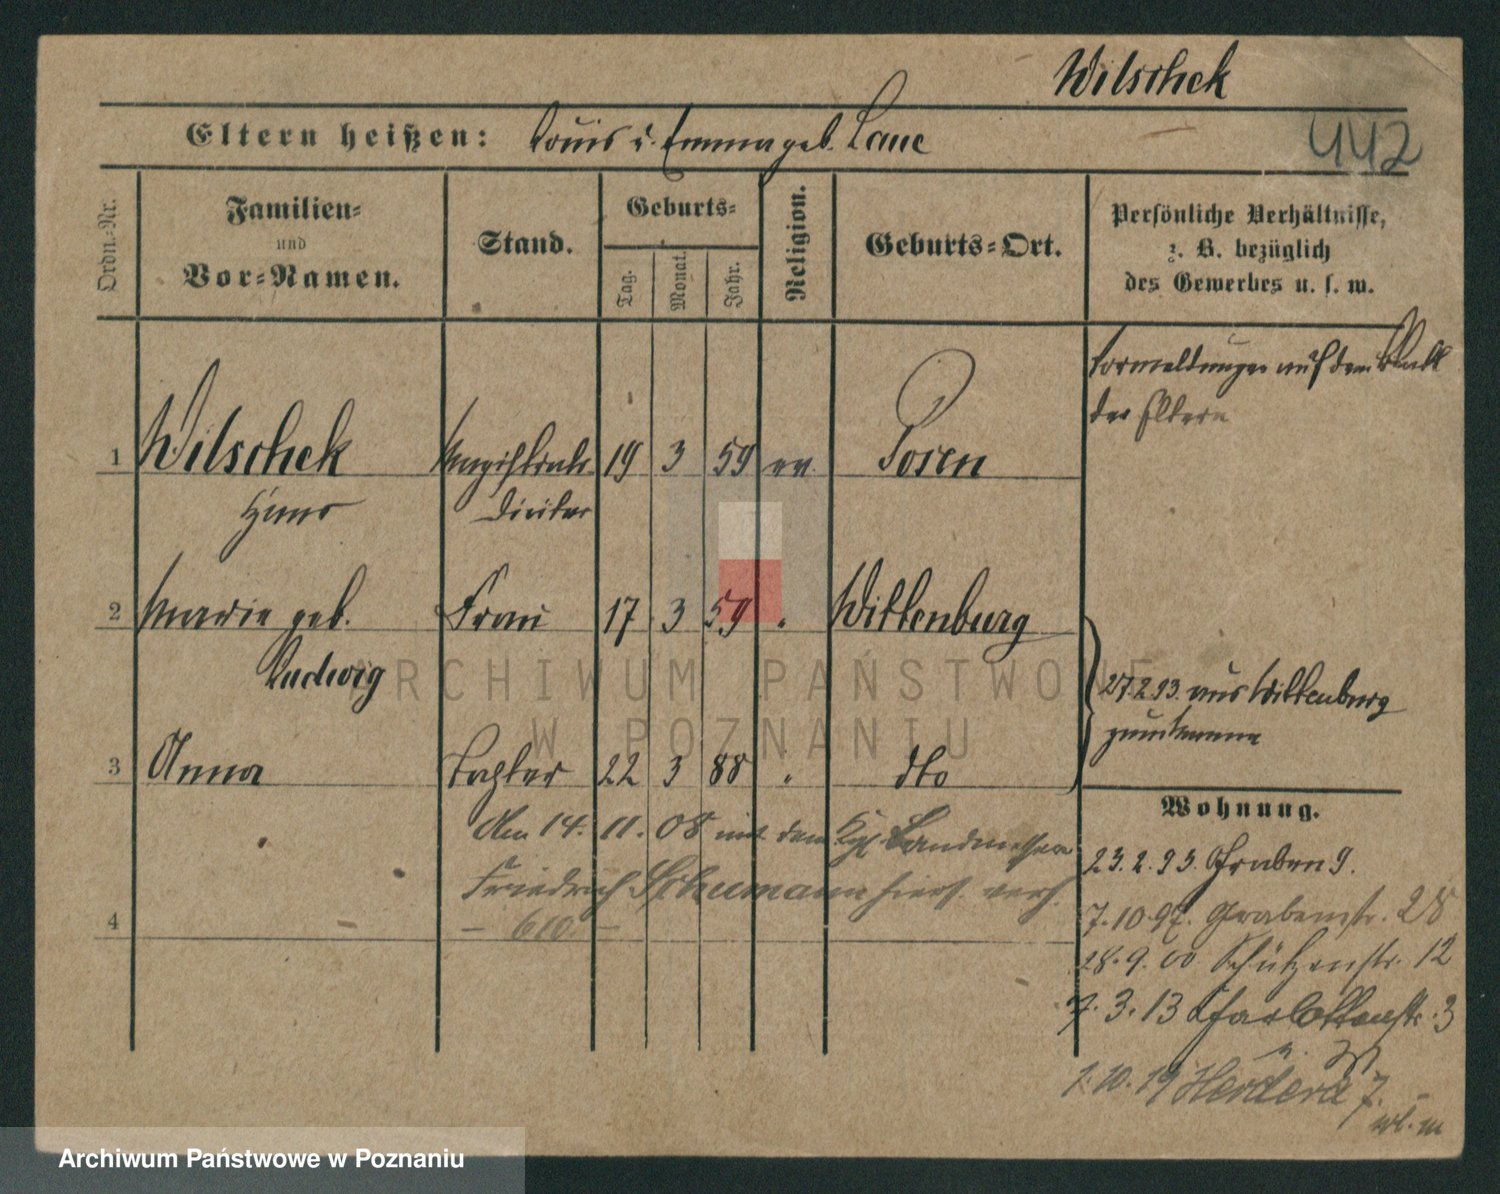 Wilschek
Eltern heißen: Louis u. Emma geb. Laue
442
Ordn.-Nr.
Familien-
und
Vor-Namen.
Stand.
Geburts-
Tag. Monat. Jahr.
Religion.
Geburts-Ort.
Persönliche Verhältnisse,
z. B. bezüglich
des Gewerbes u. s. w.
Vormeldungen auf dem Blatt
der Eltern
1 Wilschek Magistrats 19 3 59 ev. Posen
Hans
2 Marie geb. Frau 17 3 59 " Wittenburg
Ludwig
27.2.93. aus Wittenburg
3 Anna Tochter 22 3 88 " dto
Wohnung.
Am 14. 11. 08 mit dem Kgl. Landmesser
Friedrich Schumann hiers. verh.
4 – 610. –
23.2.93. Graben 9.
7.10.97. Grabenstr. 28
28.9.00 Schützenstr. 12
7.3.13 Charlottenstr. 3
1.10.19 7.
ARCHIWUM PAŃSTWOWE
W POZNANIU
Archiwum Państwowe w Poznaniu